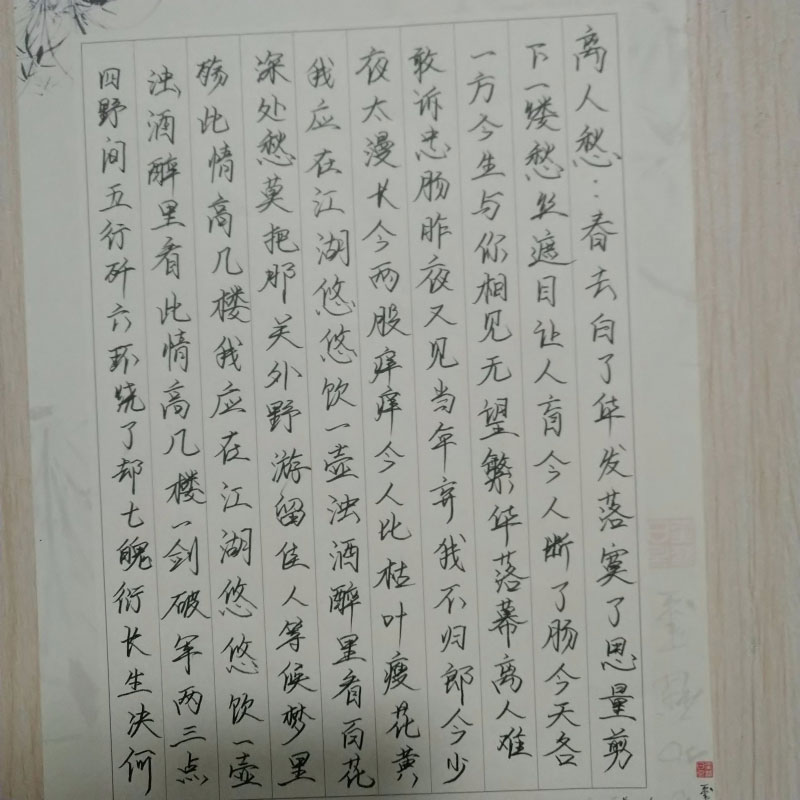 离人愁：春去白了华发落寞了思量剪
下一缕愁丝遮目让人盲今人断了肠今天各
一方今生与你相见无望繁华落幕离人难
敢诉忠肠昨夜又见当年弃我不归郎今少
夜太漫长今两股痒痒今人比枯叶瘦花黄
我应在江湖悠悠饮一壶浊酒醉里看百花
深处愁莫把那关外野游留住人等候梦里
殇此情高几楼我应在江湖悠悠饮一壶
浊酒醉里看此情高几楼一剑破军两三点
四野间五行歼六环绕了却七魄衍长生决何